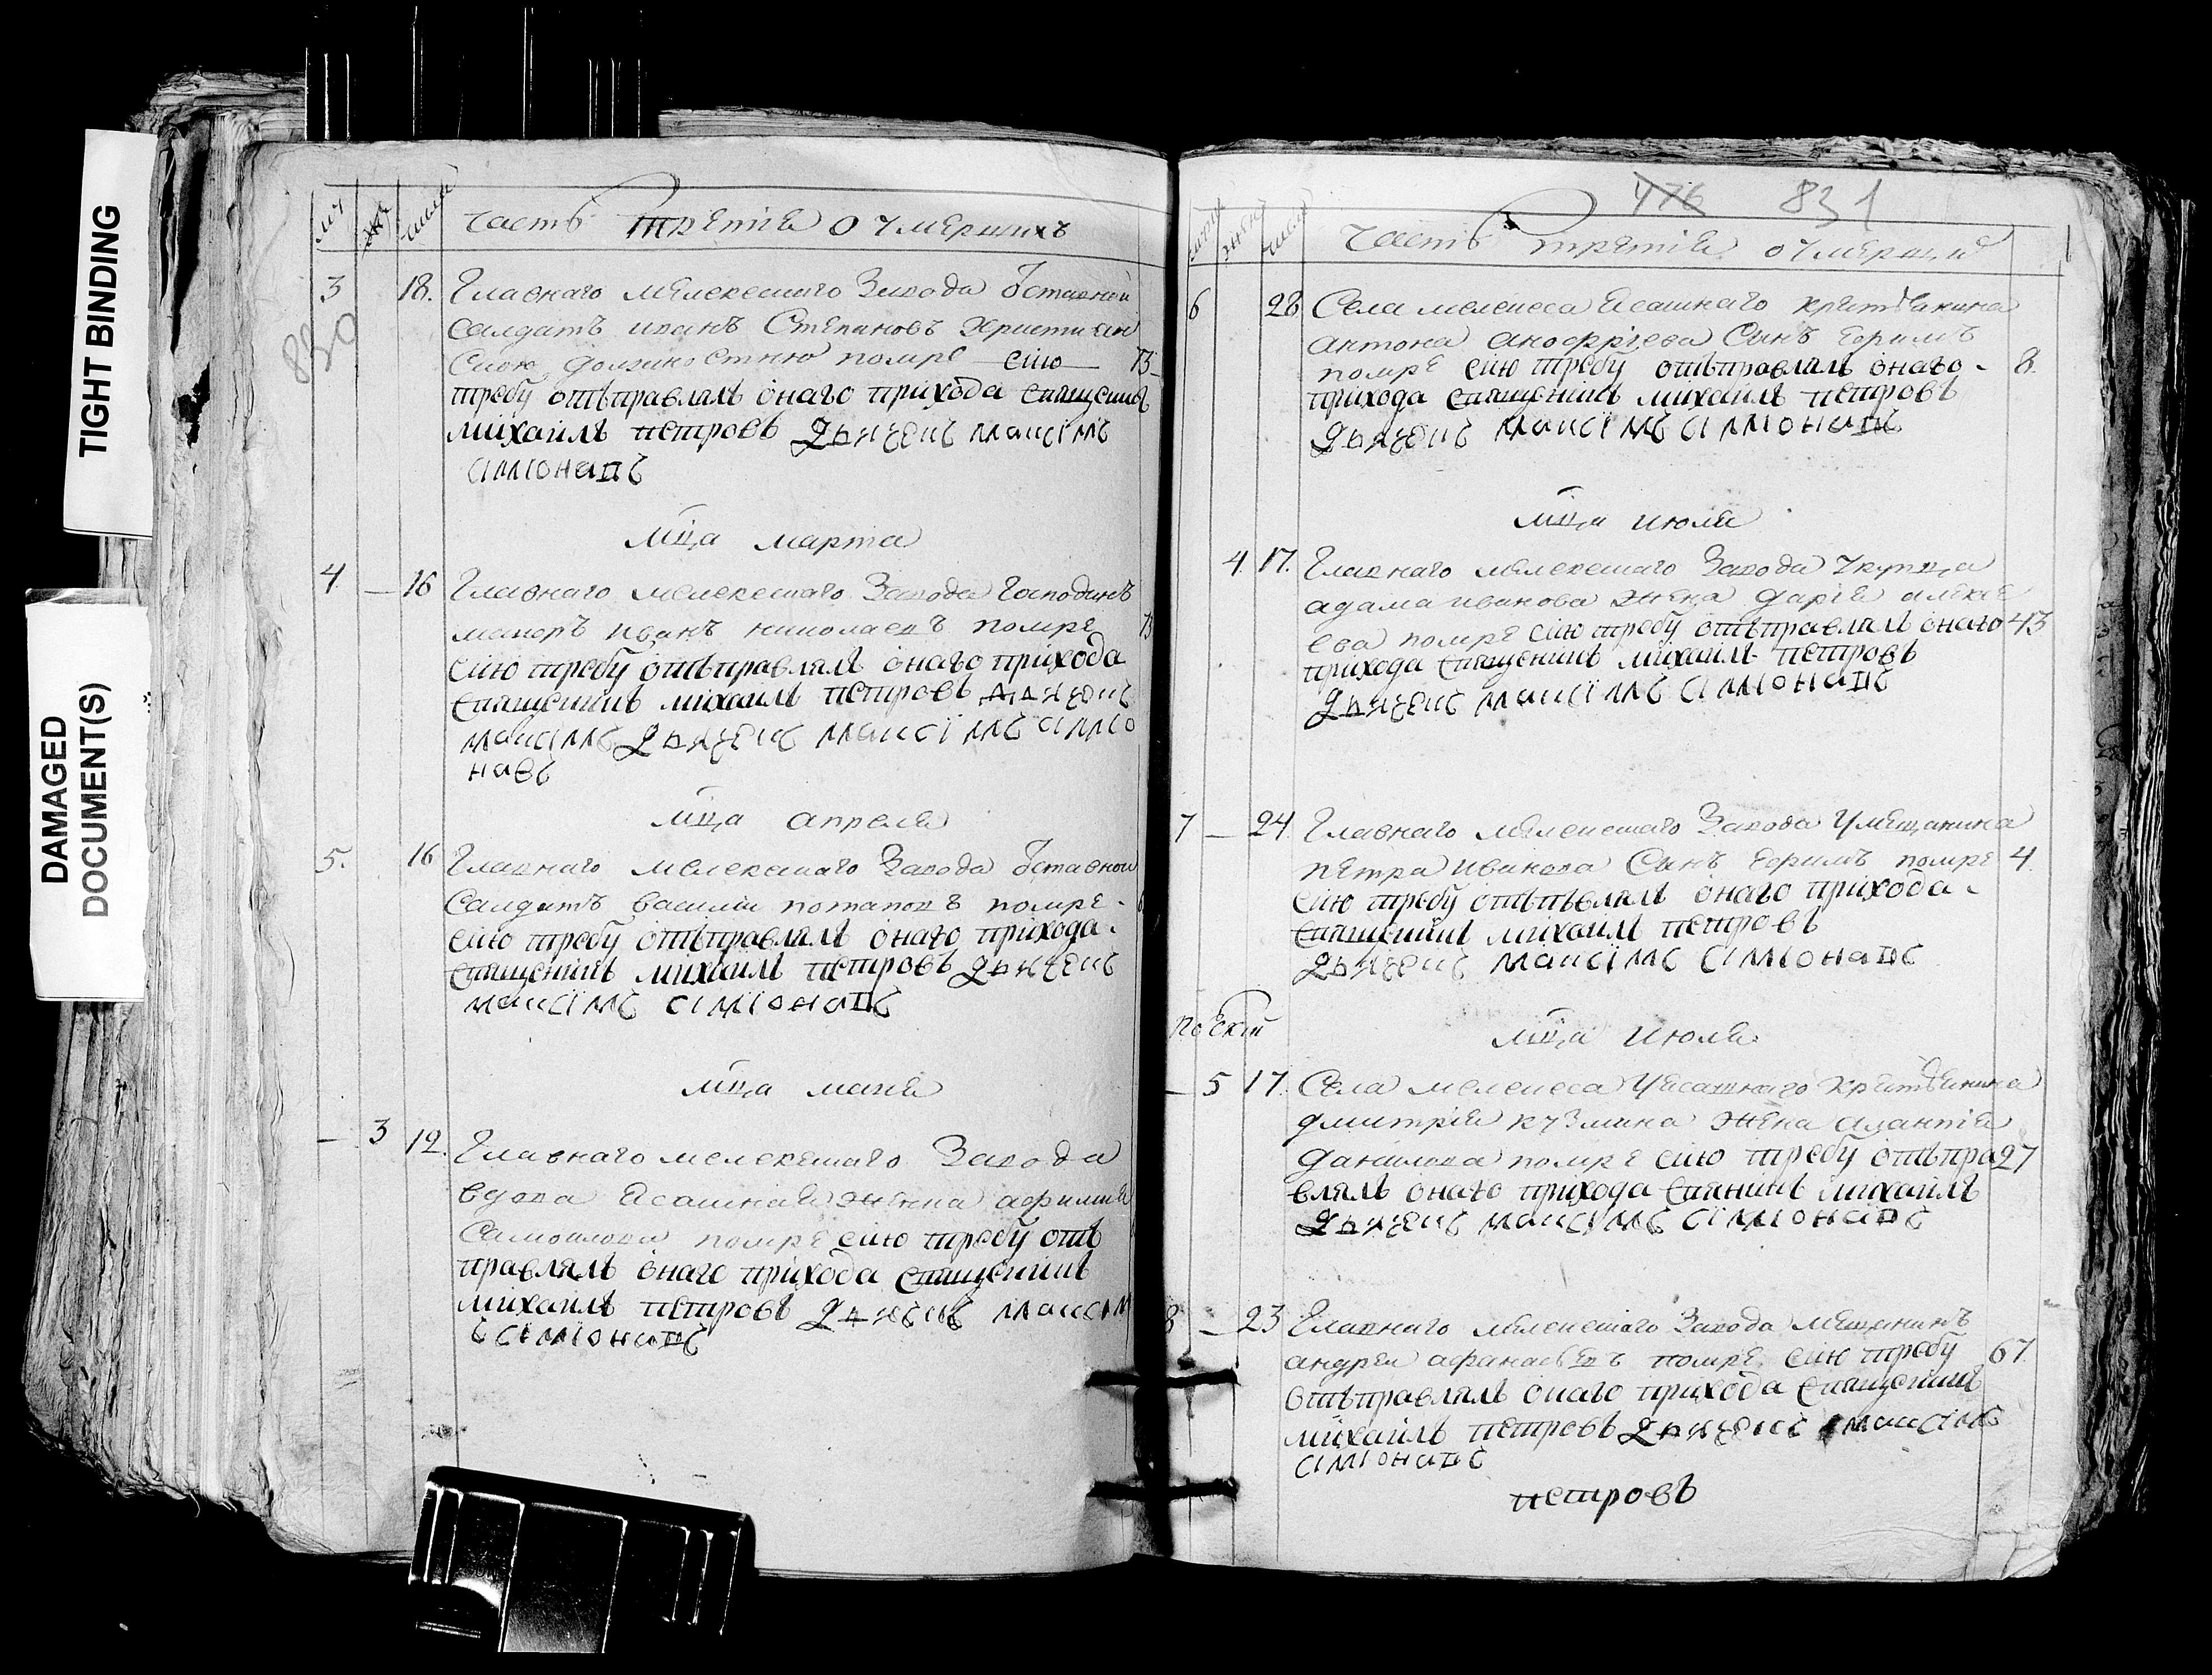 TIGHT BINDING
DAMAGED
DOCUMENT(S)
830
часть третіа о умершихъ
3 18. Главнаго мелекесшаго Завода Ѿставной
салдатъ иванъ Степановъ христианскою
должностию помре сию
требу отъправлялъ онаго прихода священникъ
михаилъ петровъ Дьячекъ максімъ
сімионавъ
мца марта
4 — 16 Главнаго мелекесшаго Завода Господинъ
иванъ николаевъ помре
сию требу отъправлялъ онаго прихода
священникъ михаилъ петровъ Дьячекъ
максімъ Дьячекъ максімъ сімио
навъ
мца апреля
5. 16 Главнаго мелекесшаго Завода Ѿставнои
Салдатъ василии потаповъ помре
сию требу отъправлялъ онаго прихода
священникъ михаилъ петровъ Дьячекъ
максімъ сімионавъ
мца маиа
— 3 12. Главнаго мелекешаго Завода
вдова ясашная жена афимия
Самоилова помре сию требу отъ
правлялъ онаго прихода священникъ
михаилъ петровъ Дьячекъ максім
ъ сімионавъ
476 831
часть третіа о умерши
6 28 Села мелекеса ясашнаго крестьянина
антона анофріева Сынъ Ефимъ
помре сию требу отъправлялъ онаго 8.
прихода священникъ михаилъ петровъ
Дьячекъ максімъ сімионавъ
мца июля
4. 17. Главнаго мелекесшаго Завода у купца
адама иванова жена дарья алекse
ева помре сию требу отъправлялъ онаго 43
прихода священникъ михаилъ петровъ
Дьячекъ максімъ сімионавъ
7 — 24. Главнаго мелекесшаго Завода у мещанина
петра иванова Сынъ ефимъ помре 4.
сию требу отъпѣвлялъ онаго прихода
священникъ михаилъ петровъ
Дьячекъ максімъ сімионавъ
мца июля
— 5 17. Села мелекеса у ясашнаго крестьянина
дмитрія кузмина жена
данилова помре сию требу отъпра 27
влялъ онаго прихода михаилъ
Дьячекъ максімъ сімионавъ
8 — 23 Главнаго мелекесшаго Завода мещенинъ
андреи афанасьевъ помре. сию требу 67.
отъправлялъ онаго прихода священникъ
михаилъ петровъ Дьячекъ максімъ
сімионавъ
петровъ